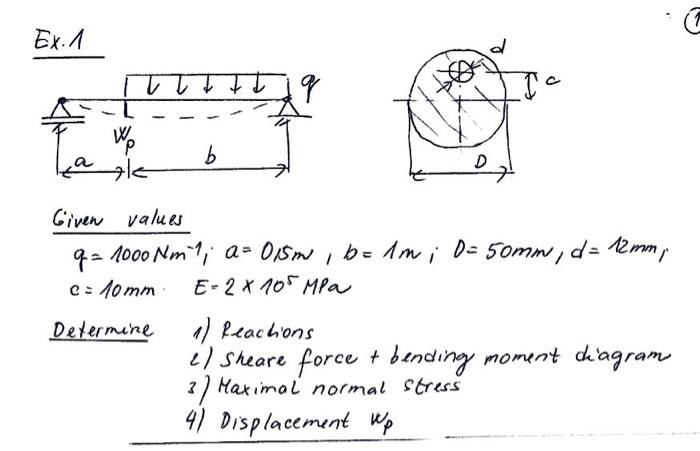 1
Ex.1
d
q
c
Wp
a
b
D
Given values
q = 1000 Nm⁻¹; a = 0,5m , b = 1m ; D = 50mm, d = 12mm,
c = 10mm. E = 2 × 10⁵ MPa
Determine 1) Reactions
2) Sheare force + bending moment diagram
3) Maximal normal stress
4) Displacement Wp